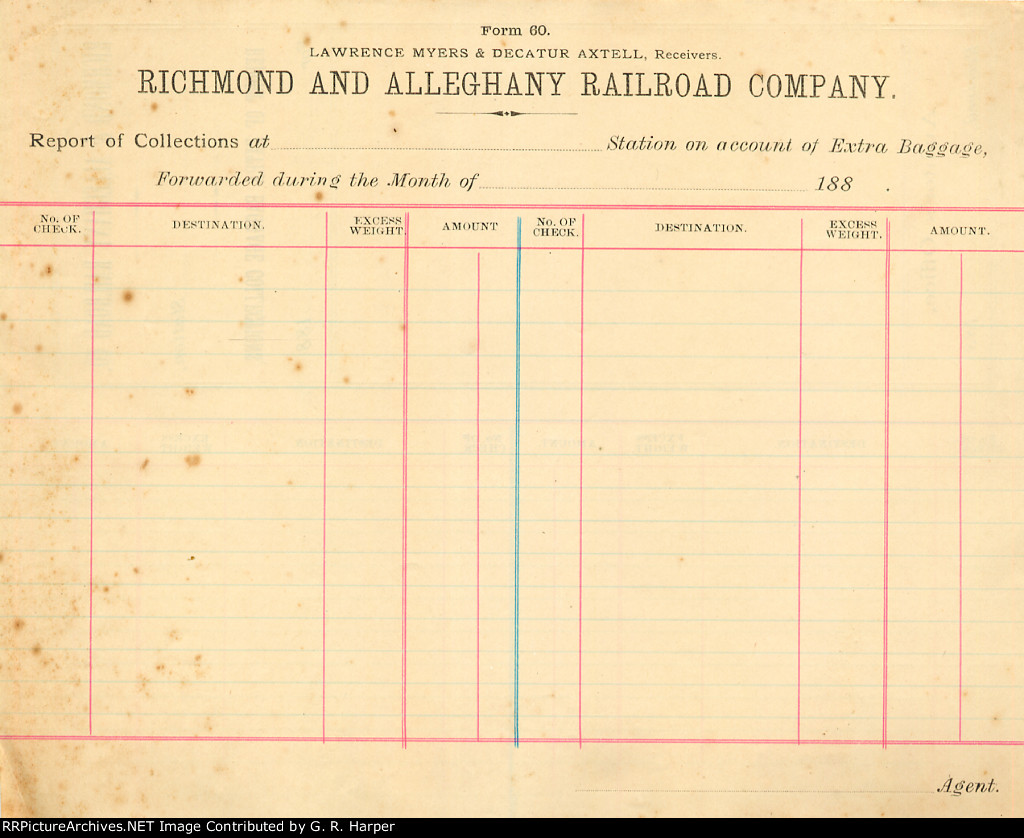 Form 60.
LAWRENCE MYERS & DECATUR AXTELL, Receivers.
RICHMOND AND ALLEGHANY RAILROAD COMPANY.
Report of Collections at Station on account of Extra Baggage,
Forwarded during the Month of 188 .
No. OF CHECK. DESTINATION. EXCESS WEIGHT. AMOUNT No. OF CHECK. DESTINATION. EXCESS WEIGHT. AMOUNT.
Agent.
RRPictureArchives.NET Image Contributed by G. R. Harper